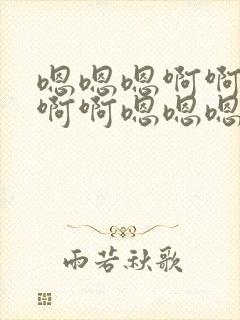 嗯嗯嗯啊啊
啊啊嗯嗯嗯
雨若秋歌